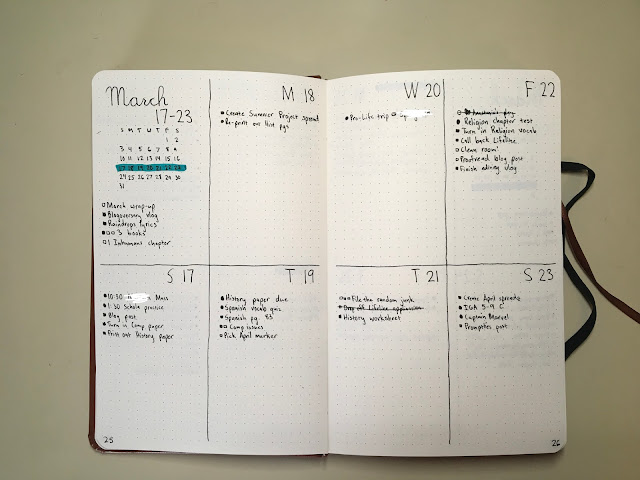 March
17-23
S M T W T F S
1 2
3 4 5 6 7 8 9
10 11 12 13 14 15 16
17 18 19 20 21 22 23
24 25 26 27 28 29 30
31
March wrap-up
Blogoversary vlog
Raindrops lyrics
3 books
1 Inhumans chapter
M 18
Create Summer Project spread
Re-print our Hist pgs
S 17
10:30 Mass
1:30 Schola practice
Blog post
Turn in Comp paper
Print out History paper
T 19
History paper due
Spanish vocab quiz
Spanish pg. 83
Comp issues
Pick April marker
25
W 20
Pro-Life trip
F 22
Religion chapter test
Turn in Religion vocab
Call back Lifeline
Clean room
Proofread blog post
Finish editing vlog
T 21
File the random junk
Drop off Lifeline application
History worksheet
S 23
Create April spreads
IGA 5-9 C
Captain Marvel
Prompts post
26